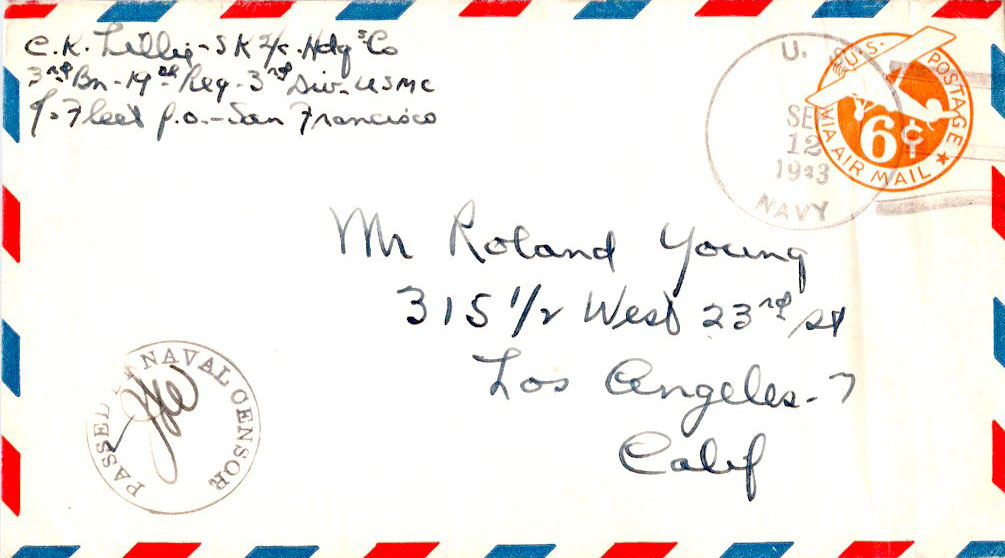 C.K. Lillie - SK 2/c - Hdqs Co
3rd Bn - 19th Reg - 3rd Div - USMC
℅ Fleet P.O. - San Francisco
U.S.
SE
12
1943
NAVY
U.S. POSTAGE
6¢
VIA AIR MAIL
Mr Roland Young
315 1/2 West 23rd St
Los Angeles - 7
Calif
PASSED BY NAVAL CENSOR